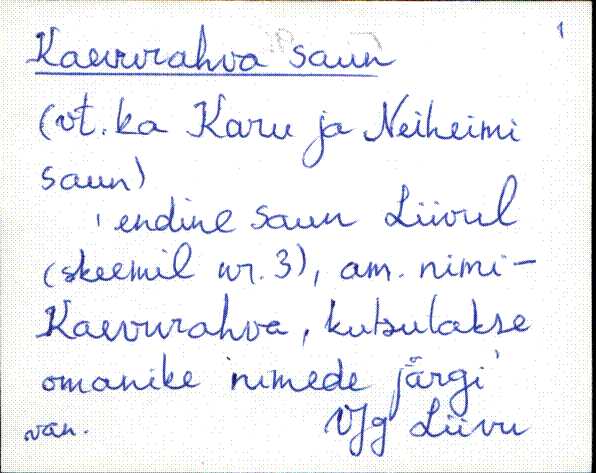 1
Kaevurahva saun
(vt. ka Karu ja Neiheimi
saun)
'endine saun Liivul
(skeemil nr. 3), am. nimi -
Kaevurahva, kutsutakse
omanike nimede järgi'
van. VJg Liivu